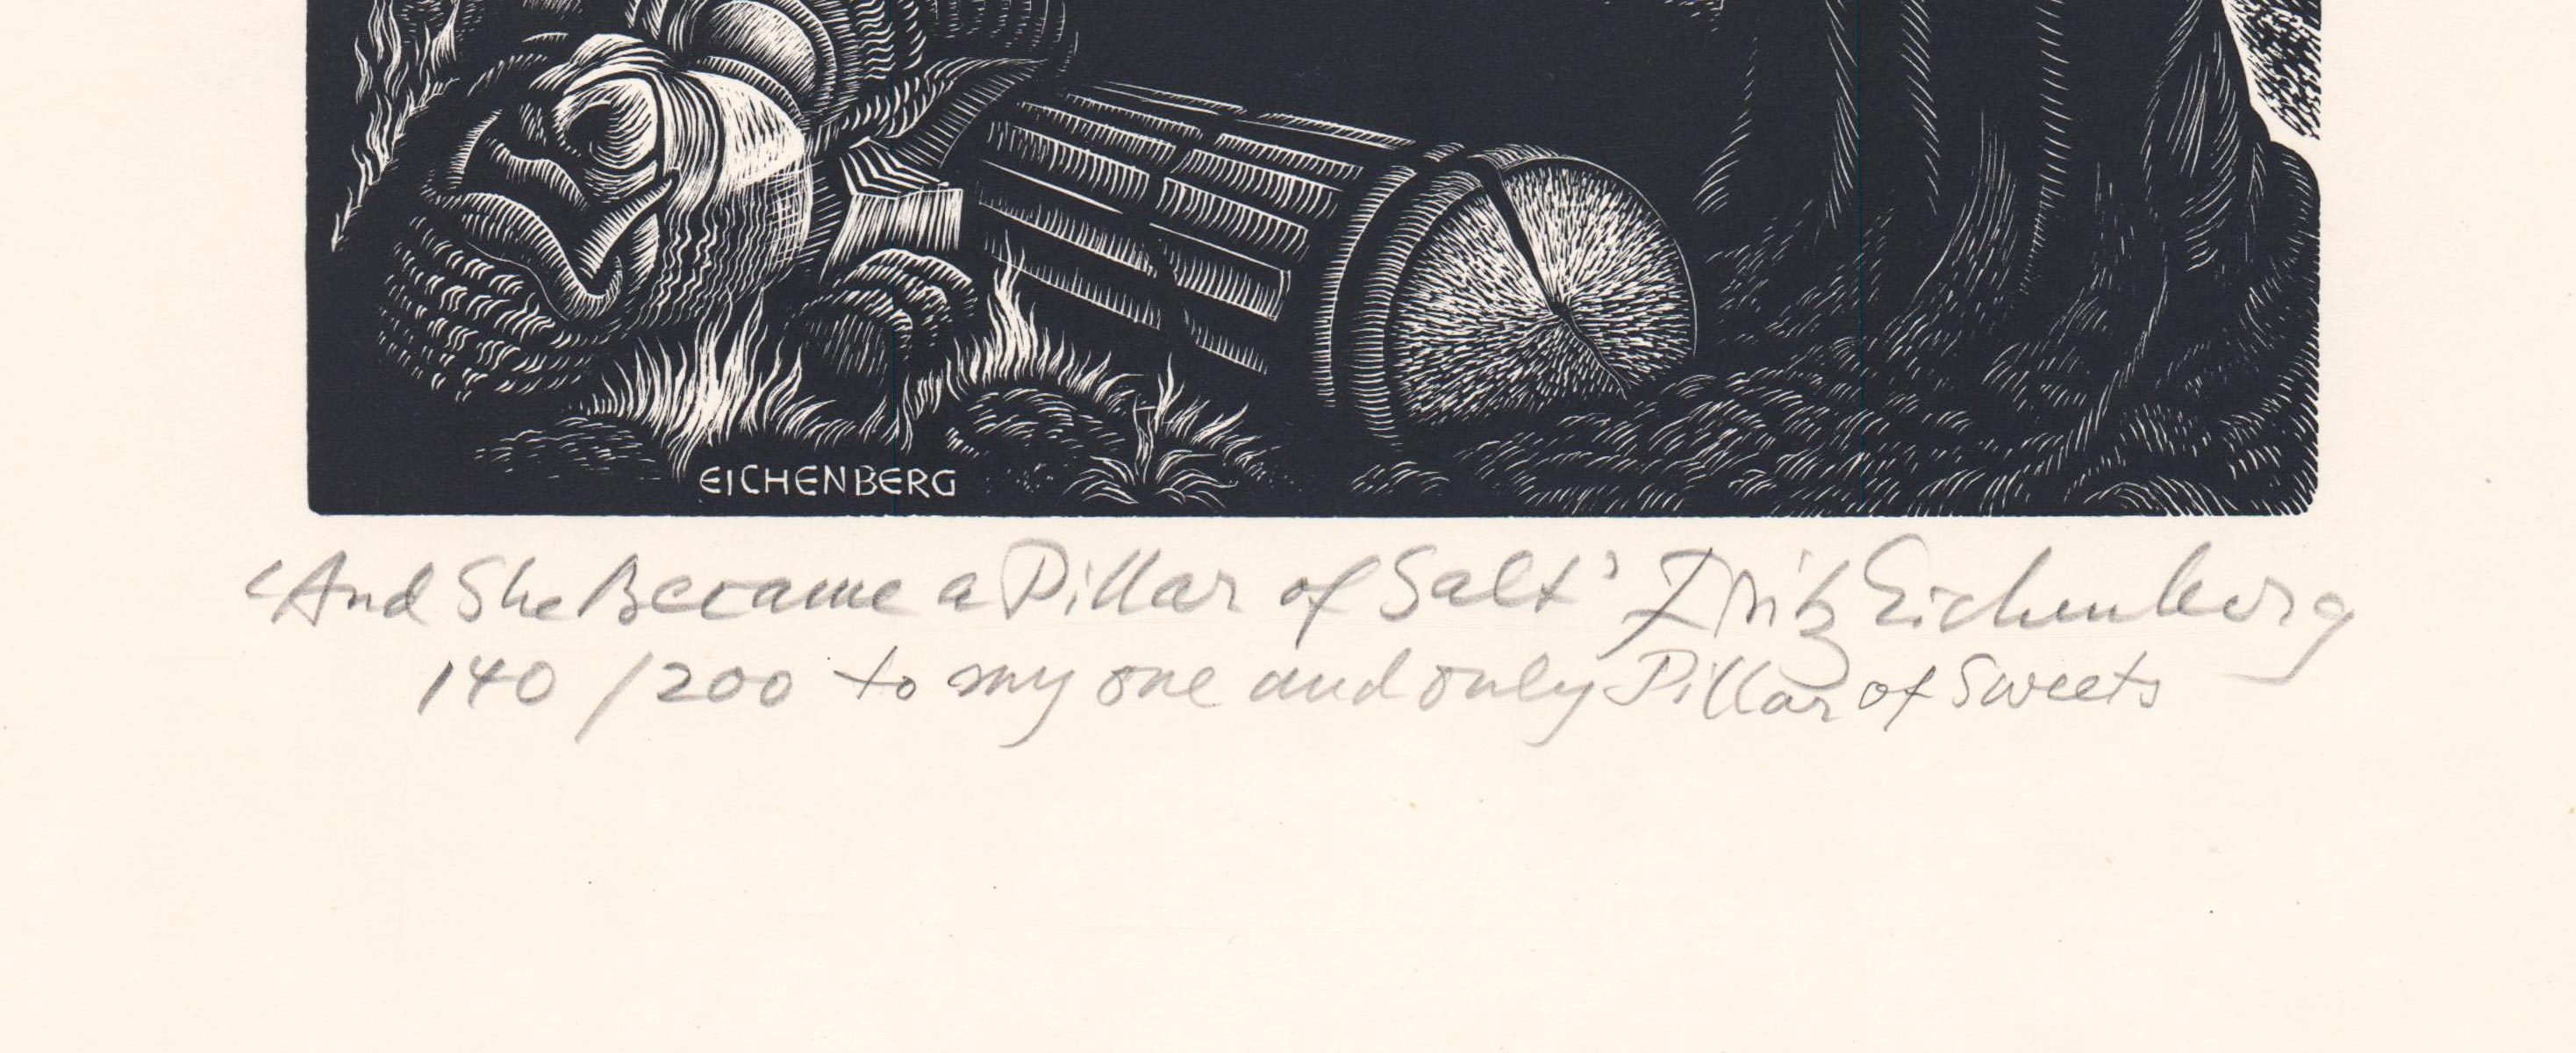 EICHENBERG
'And She Became a Pillar of Salt' Fritz Eichenberg
140/200 to my one and only Pillar of Sweets